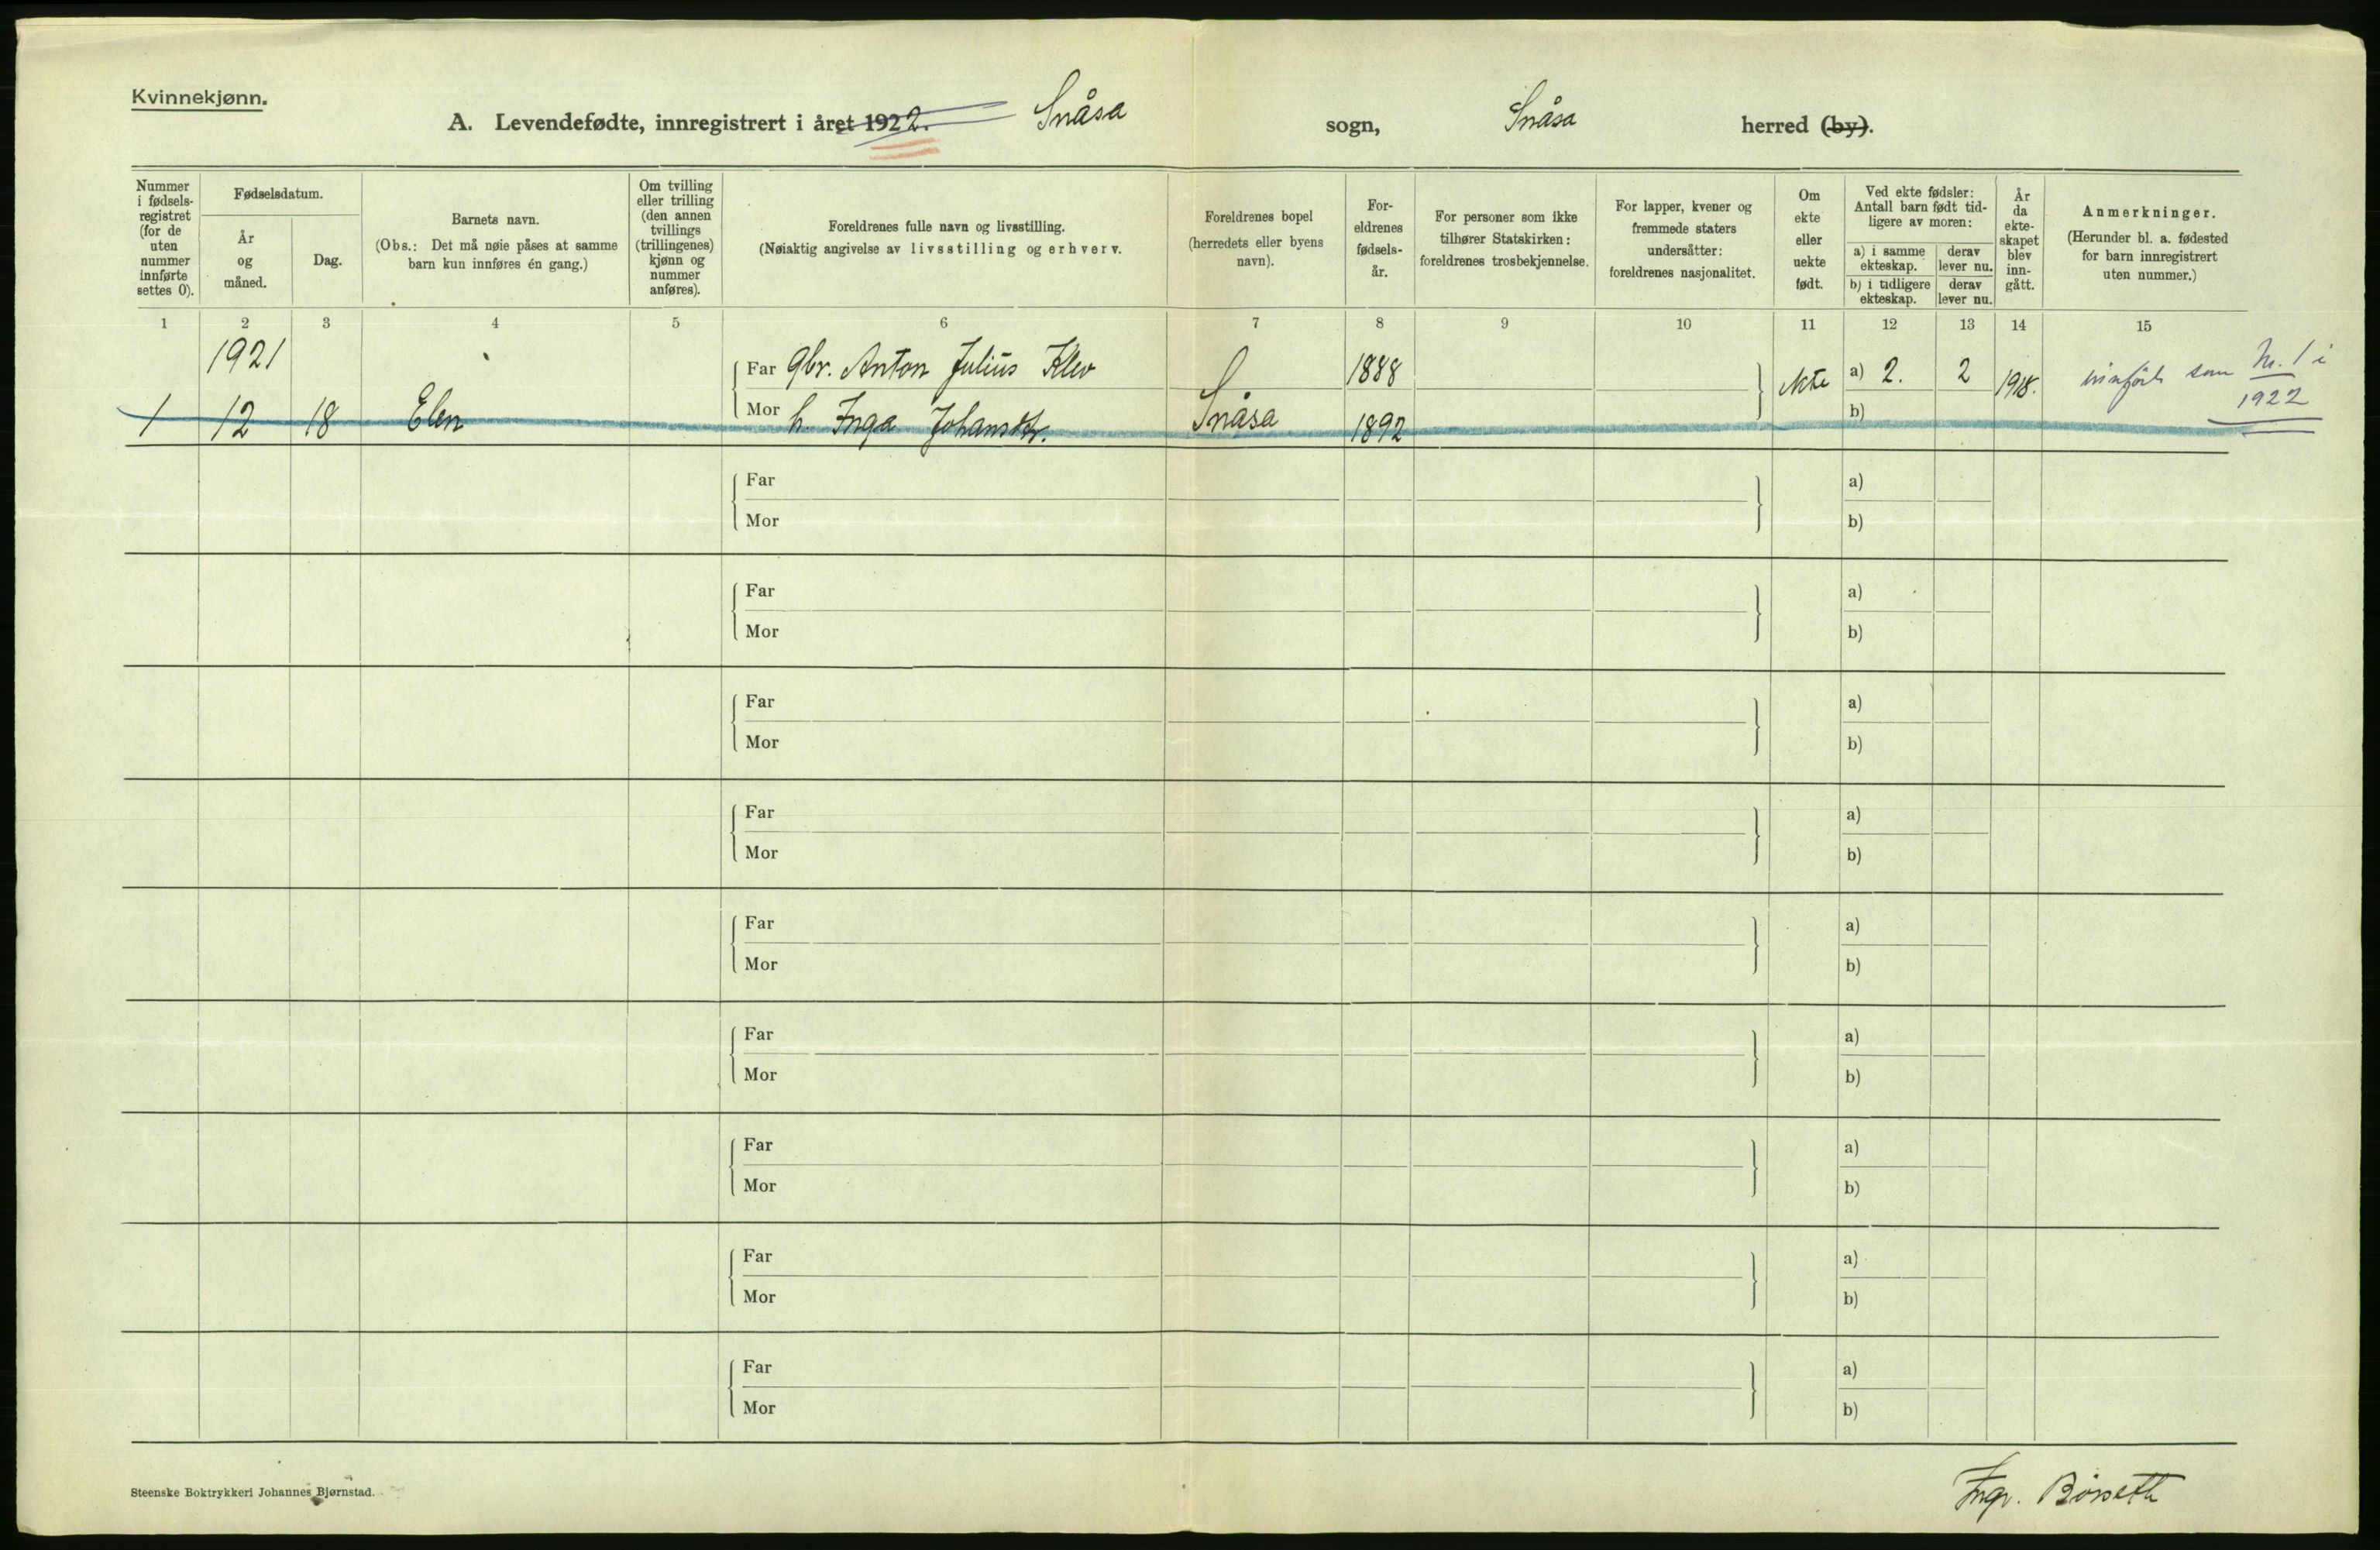 Kvinnekjønn.
A. Levendefødte, innregistrert i året 1922. Snåsa sogn, Snåsa herred (by).
Nummer i fødsels-registret (for de uten nummer innførte settes 0).
Fødselsdatum.
År og måned.
Dag.
Barnets navn.
(Obs.: Det må nøie påses at samme barn kun innføres én gang.)
Om tvilling eller trilling (den annen tvillings (trillingenes) kjønn og nummer anføres).
Foreldrenes fulle navn og livsstilling.
(Nøiaktig angivelse av livsstilling og erhverv.
Foreldrenes bopel (herredets eller byens navn).
For-eldrenes fødsels-år.
For personer som ikke tilhører Statskirken: foreldrenes trosbekjennelse.
For lapper, kvener og fremmede staters undersåtter: foreldrenes nasjonalitet.
Om ekte eller uekte født.
Ved ekte fødsler: Antall barn født tid-ligere av moren:
a) i samme ekteskap.
derav lever nu.
b) i tidligere ekteskap.
derav lever nu.
År da ekte-skapet blev inn-gått.
Anmerkninger.
(Herunder bl. a. fødested for barn innregistrert uten nummer.)
1 2 3 4 5 6 7 8 9 10 11 12 13 14 15
1921 Far gbr. Anton Julius Klev 1888 ekte a) 2. 2 1918. innført som Nr. 1 i
1 12 18 Elen Mor h. Inga Johansdtr. Snåsa 1892 b) 1922
Far a)
Mor b)
Far a)
Mor b)
Far a)
Mor b)
Far a)
Mor b)
Far a)
Mor b)
Far a)
Mor b)
Far a)
Mor b)
Far a)
Mor b)
Far a)
Mor b)
Steenske Boktrykkeri Johannes Bjørnstad.
Ingv. Bøsseth